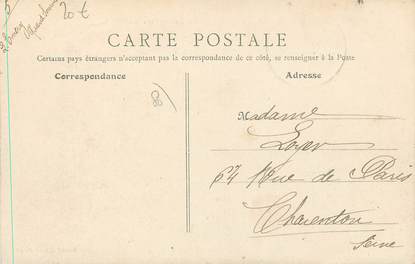 20 €
CARTE POSTALE
Certains pays étrangers n'acceptant pas la correspondance de ce côté, se renseigner à la Poste
Correspondance
Adresse
88
Madame
Loyer
67 Rue de Paris
Charenton
Seine